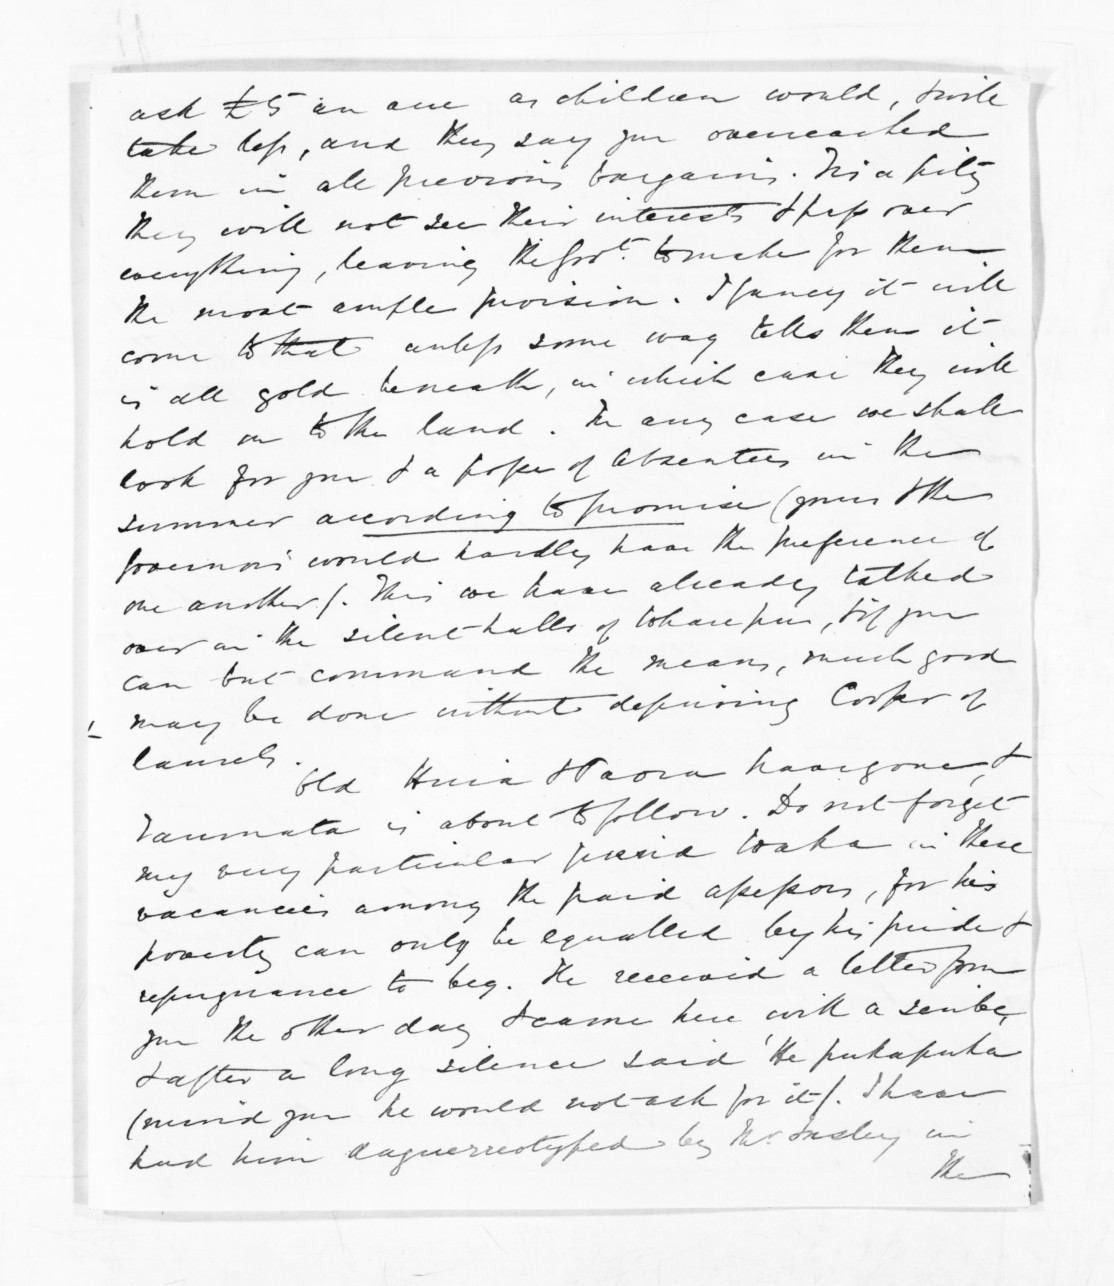 ask £5 an acre as children would, & will
take less, and they say you overreached
them in all previous bargains. Tis a pity
they will not see their interests & pass over
everything, leaving the Govt. to make for them
the most ample provision. I fancy it will
come to that unless some wag tells them it
is all gold beneath, in which case they will
hold on to the land. In any case we shall
look for you & a posse of Absentees in the
summer according to promise (yours & the
Governors' would hardly have the preference of
one another). This we have already talked
over in the silent halls of Wharepuni, & if you
can but command the means, much good
may be done without depriving Cooper of
laurels.
Old Huia & Paora have gone, &
Taumata is about to follow. Do not forget
my very particular friend Waka in these
vacancies among the paid assessors, for his
poverty can only be equalled by his pride &
repugnance to beg. He received a letter from
you the other day & came here with a scribe,
& after a long silence said 'He pukapuka
(mind you he would not ask for it). I have
had him daguerreotyped by Mr. Insley in
the